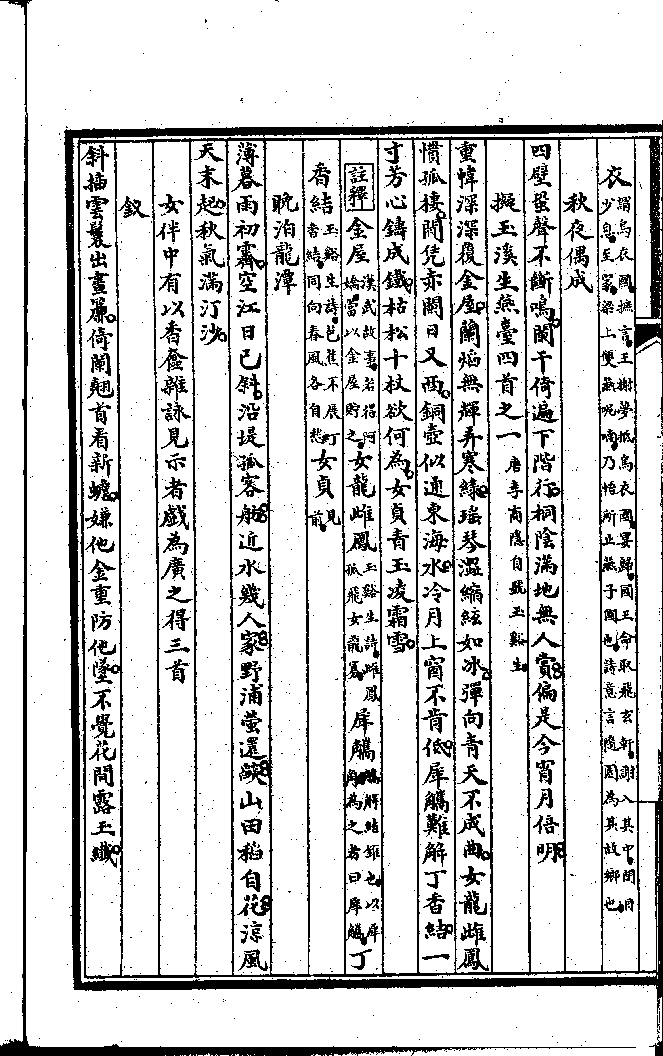 衣謂烏衣國摭言王榭夢抵烏衣國宴歸國王命取飛玄軒謝入其中閉目少息至家梁上雙燕呢喃乃悟所止燕子國也詩意言隨園為其故鄉也
秋夜偶成
四壁蛩聲不斷鳴闌干倚遍下階行桐陰滿地無人賞偏是今宵月倍明
擬玉溪生燕臺四首之一唐李商隱自號玉谿生
重幃深深覆金屋蘭焰無輝弄寒綠瑤琴澀縮絃如冰彈向青天不成曲女龍雌鳳
慣孤棲闌凭亦闌日又西銅壺似通東海水冷月上窗不肯低犀觿難解丁香結一
寸芳心鑄成鐵枯松十杖欲何為女貞青玉凌霜雪
註釋金屋漢武故事若得阿嬌當以金屋貯之女龍雌鳳玉谿生詩雌鳳孤飛女龍寡犀觿觿解結錐也以犀角為之者曰犀觿丁
香結玉谿生詩芭蕉不展丁香結同向春風各自愁女貞見前
晚泊龍潭
薄暮雨初霽空江日已斜沿堤孤客舫近水幾人家野浦螢還歇山田稻自花涼風
天末起秋氣滿汀沙
女伴中有以香奩雜詠見示者戲為廣之得三首
釵
斜插雲鬟出畫簾倚闌翹首看新蟾嫌他金重防他墜不覺花間露玉纖